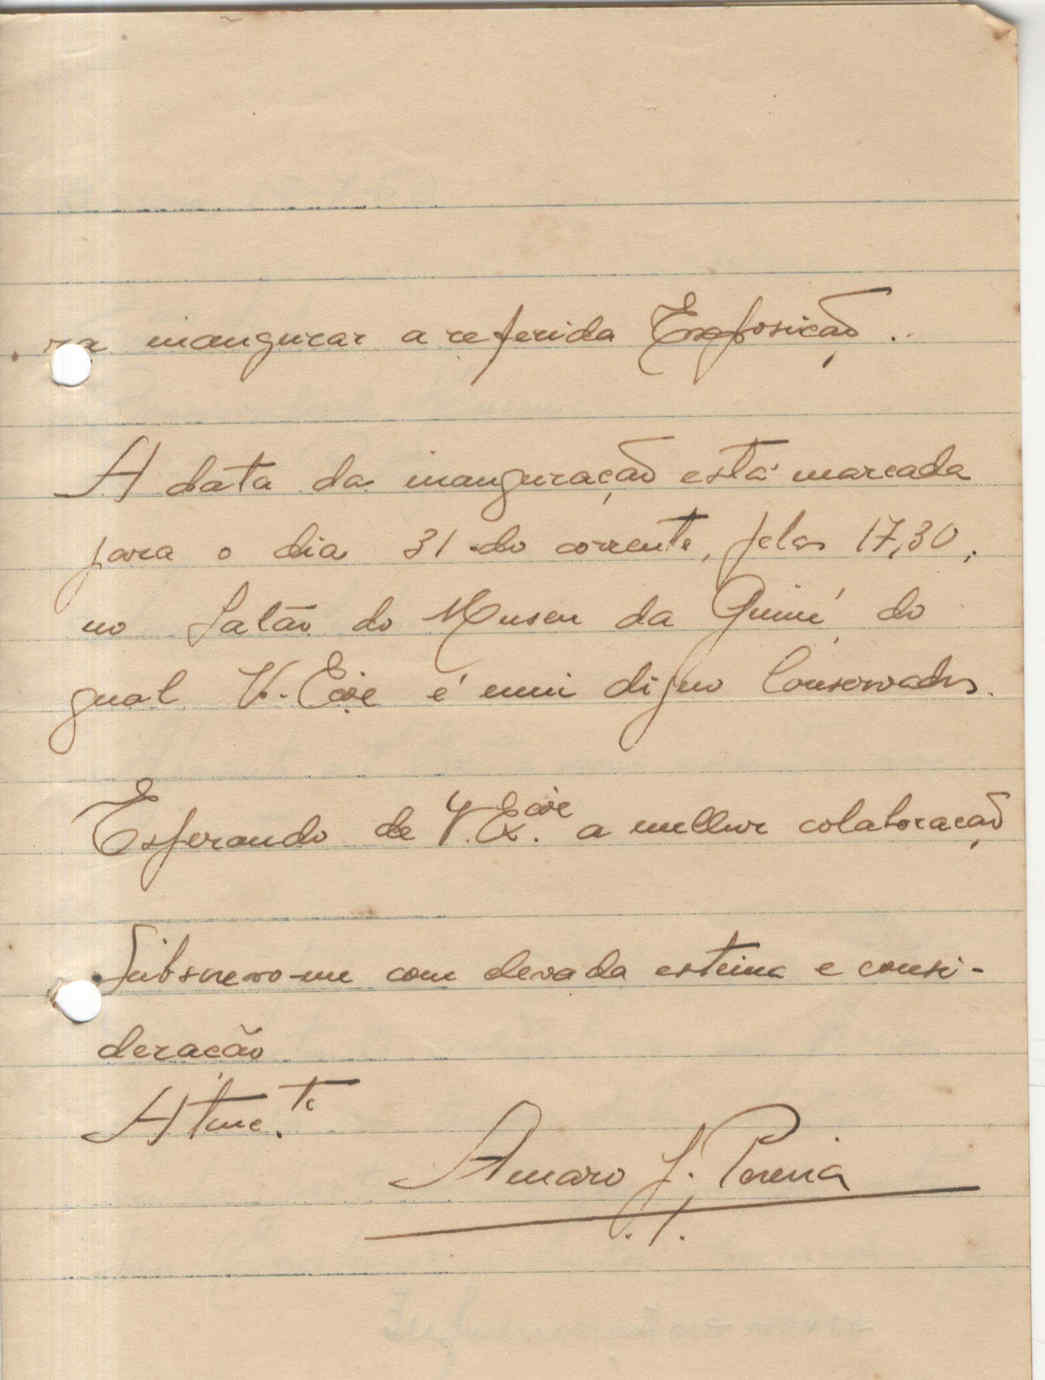 ra inaugurar a referida Exposição..
A data da inauguração está marcada
para o dia 31 do corrente, pelas 17,30,
no Salão do Museu da Guiné, do
qual V. Exie é mui digno Conservador.
Esperando de V. Ex.cie a melhor colaboração
Subscrevo-me com elevada estima e consi-
deração
Atme.te
Amaro J. Pereira